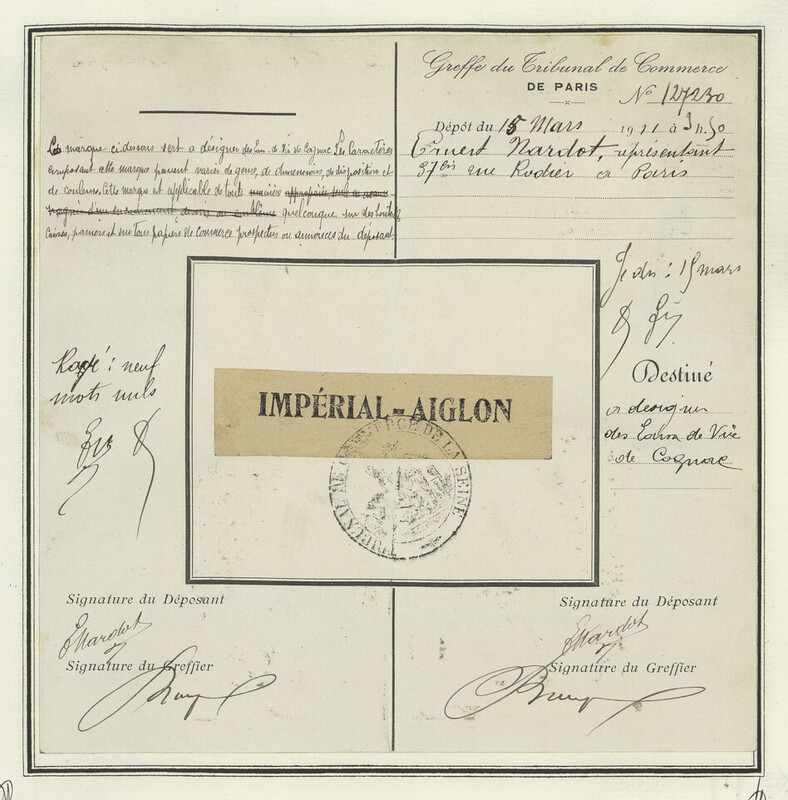 Greffe du Tribunal de Commerce
DE PARIS
N° 127230
Dépôt du 15 Mars 1911 à 3 h. 50
Ernest Nardot, représentant
37 bis rue Rodier à Paris
La marque ci dessus sert à désigner des Eaux de Vie de Cognac. Les caractères
composant cette marque peuvent varier de genre, de dimensions, de disposition et
de couleurs. Cette marque est applicable de toute manière
quelconque sur des bouteilles
caisses, paniers et sur tous papiers de commerce prospectus ou annonces du déposant.
Rayé : neuf
mots nuls
15 mars
Destiné
à désigner
des Eaux de Vie
de Cognac
IMPÉRIAL-AIGLON
TRIBUNAL DE COMMERCE DE LA SEINE
Signature du Déposant
ENardot
Signature du Greffier
Signature du Déposant
ENardot
Signature du Greffier